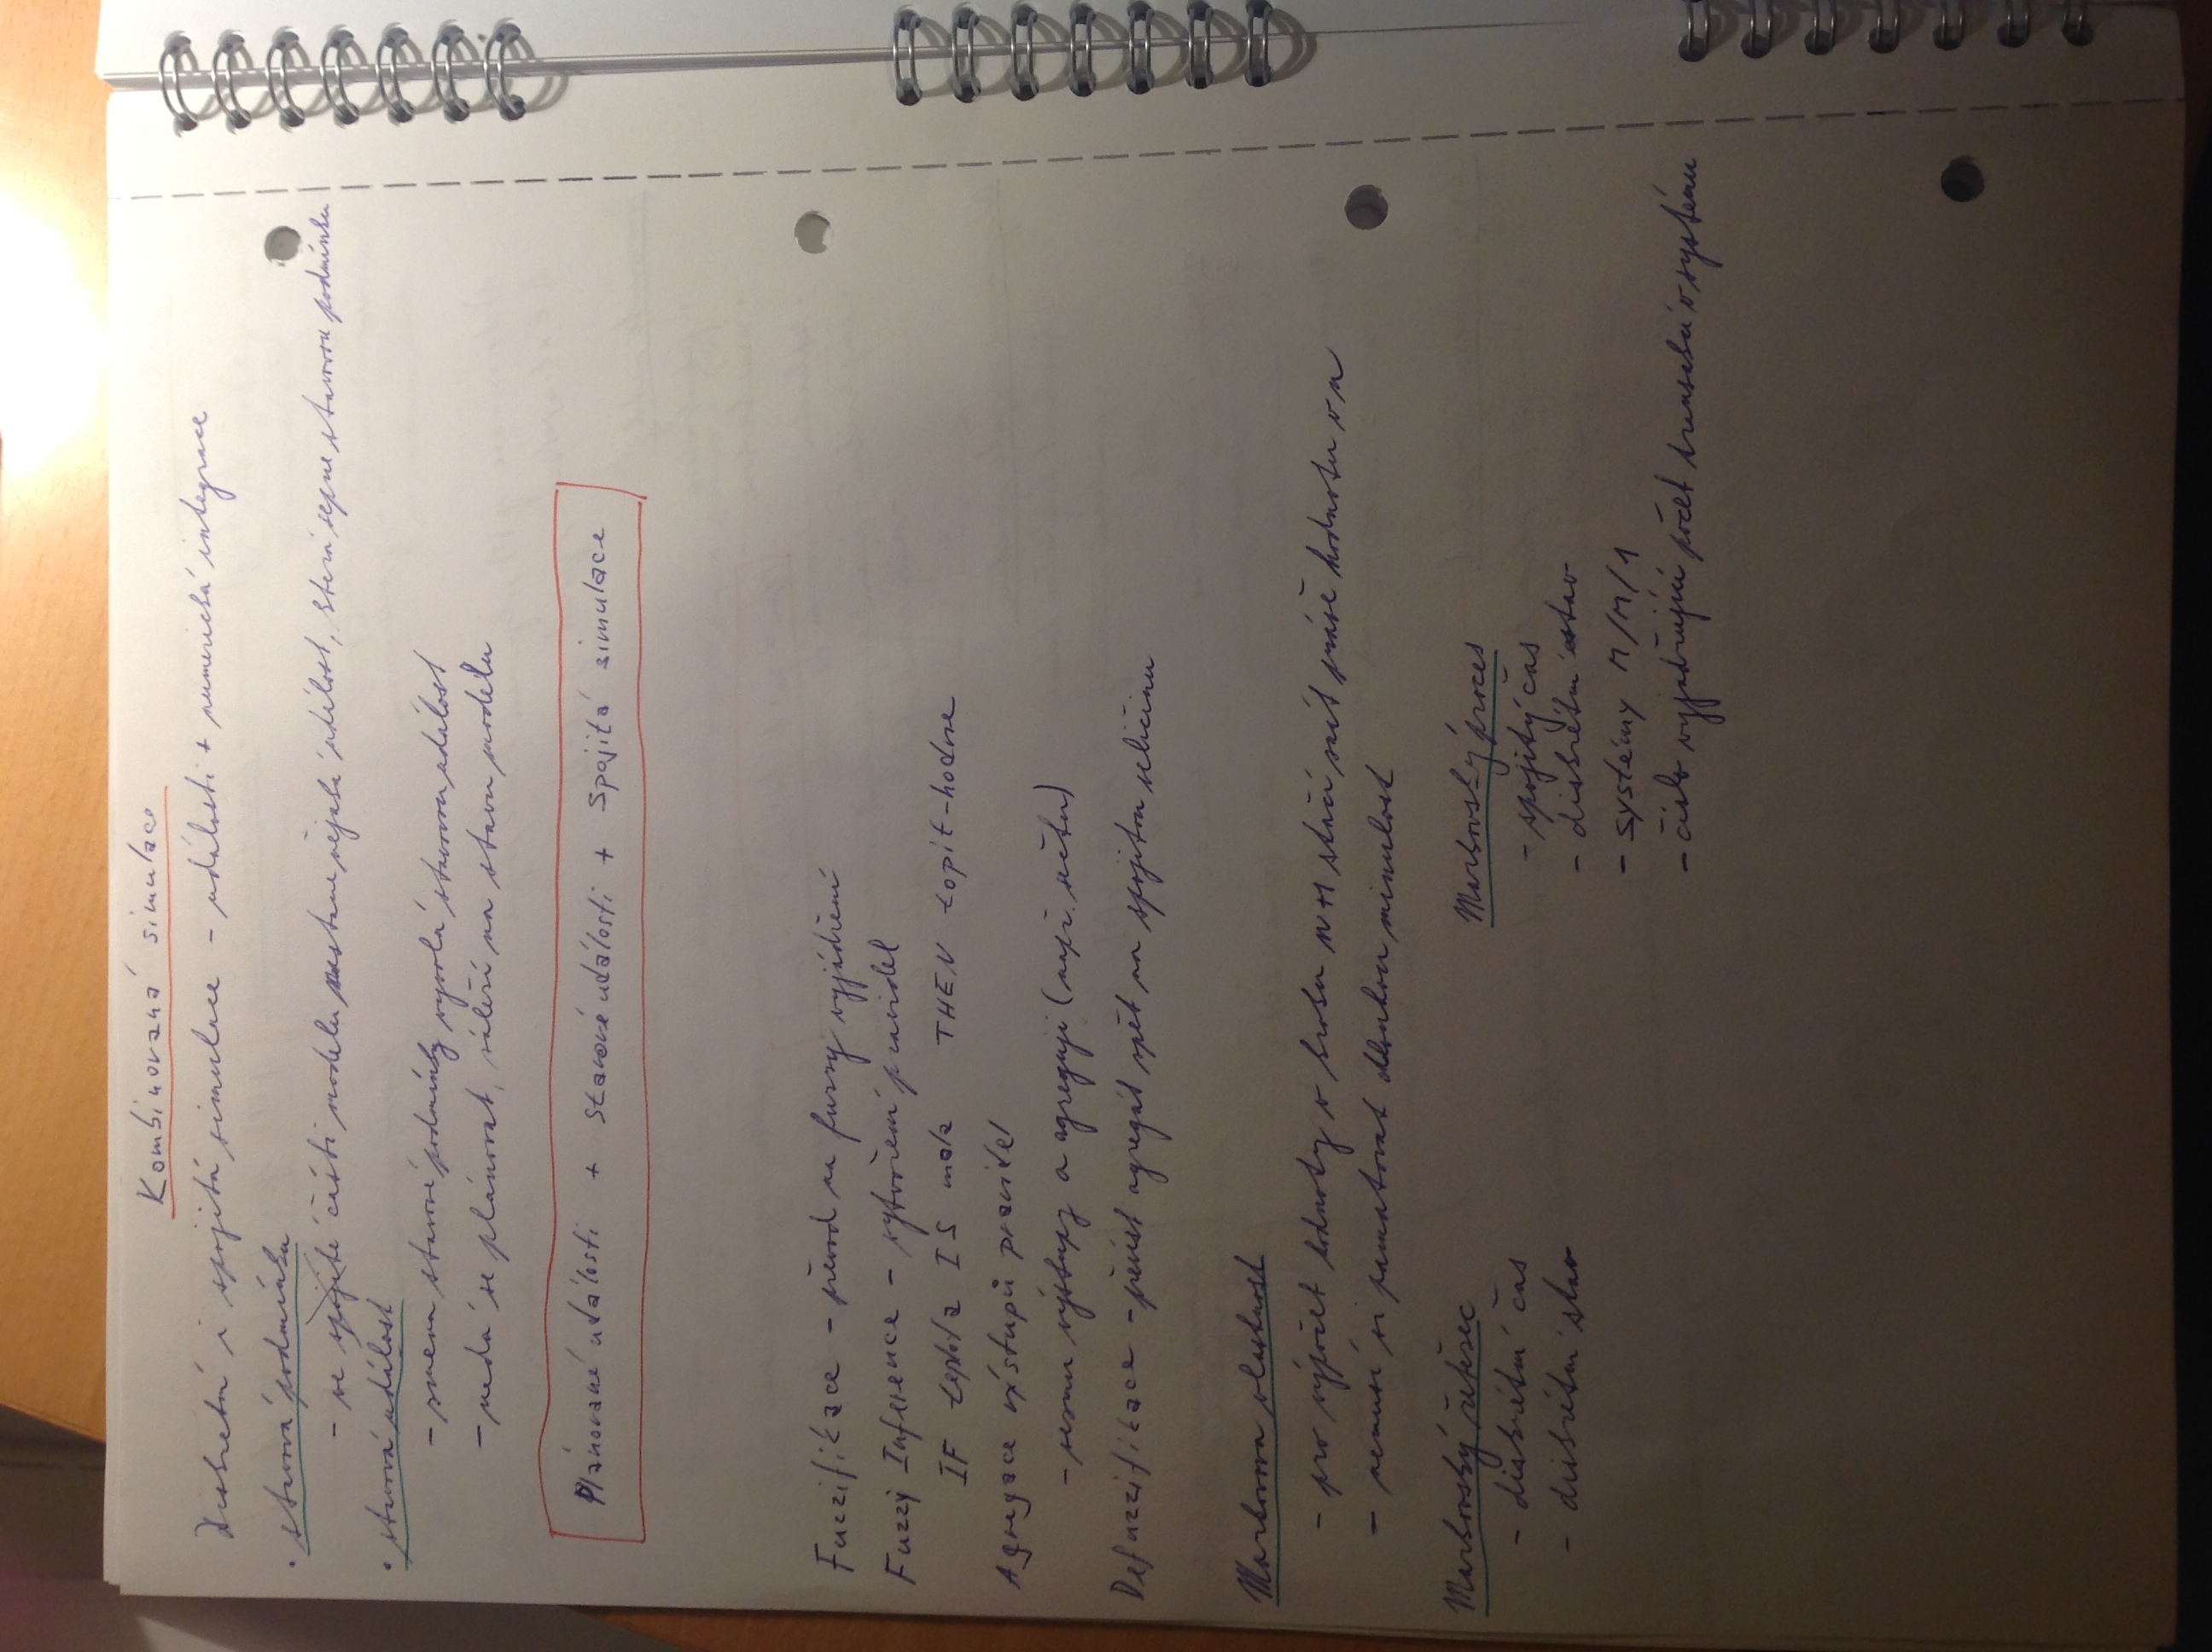 Kombinovaná simulace
Diskrétní i spojitá simulace - události + numerická integrace
• stavová podmínka
- ve spojité části modelu nastane nějaká událost, která sepne stavovou podmínku
• stavová událost
- změna stavové podmínky vyvolá stavovou událost
- nedá se plánovat, záleží na stavu modelu
Plánované události + Stavové události + Spojitá simulace
Fuzzifikace - převod na fuzzy vyjádření
Fuzzy Inference - vytvoření pravidel
IF teplota IS mala THEN topit-hodne
Agregace výstupů pravidel
- vezmu výstupy a agreguji (např. sečtu)
Defuzzifikace - převést agregát zpět na spojitou veličinu
Markovova vlastnost
- pro výpočet hodnoty v kroku n+1 stačí znát právě hodnotu v n
- nemusí si pamatovat dlouhou minulost
Markovský řetězec
- diskrétní čas
- diskrétní stav
Markovský proces
- spojitý čas
- diskrétní stav
- systémy M/M/1
- číslo vyjadřující počet transakcí v systému